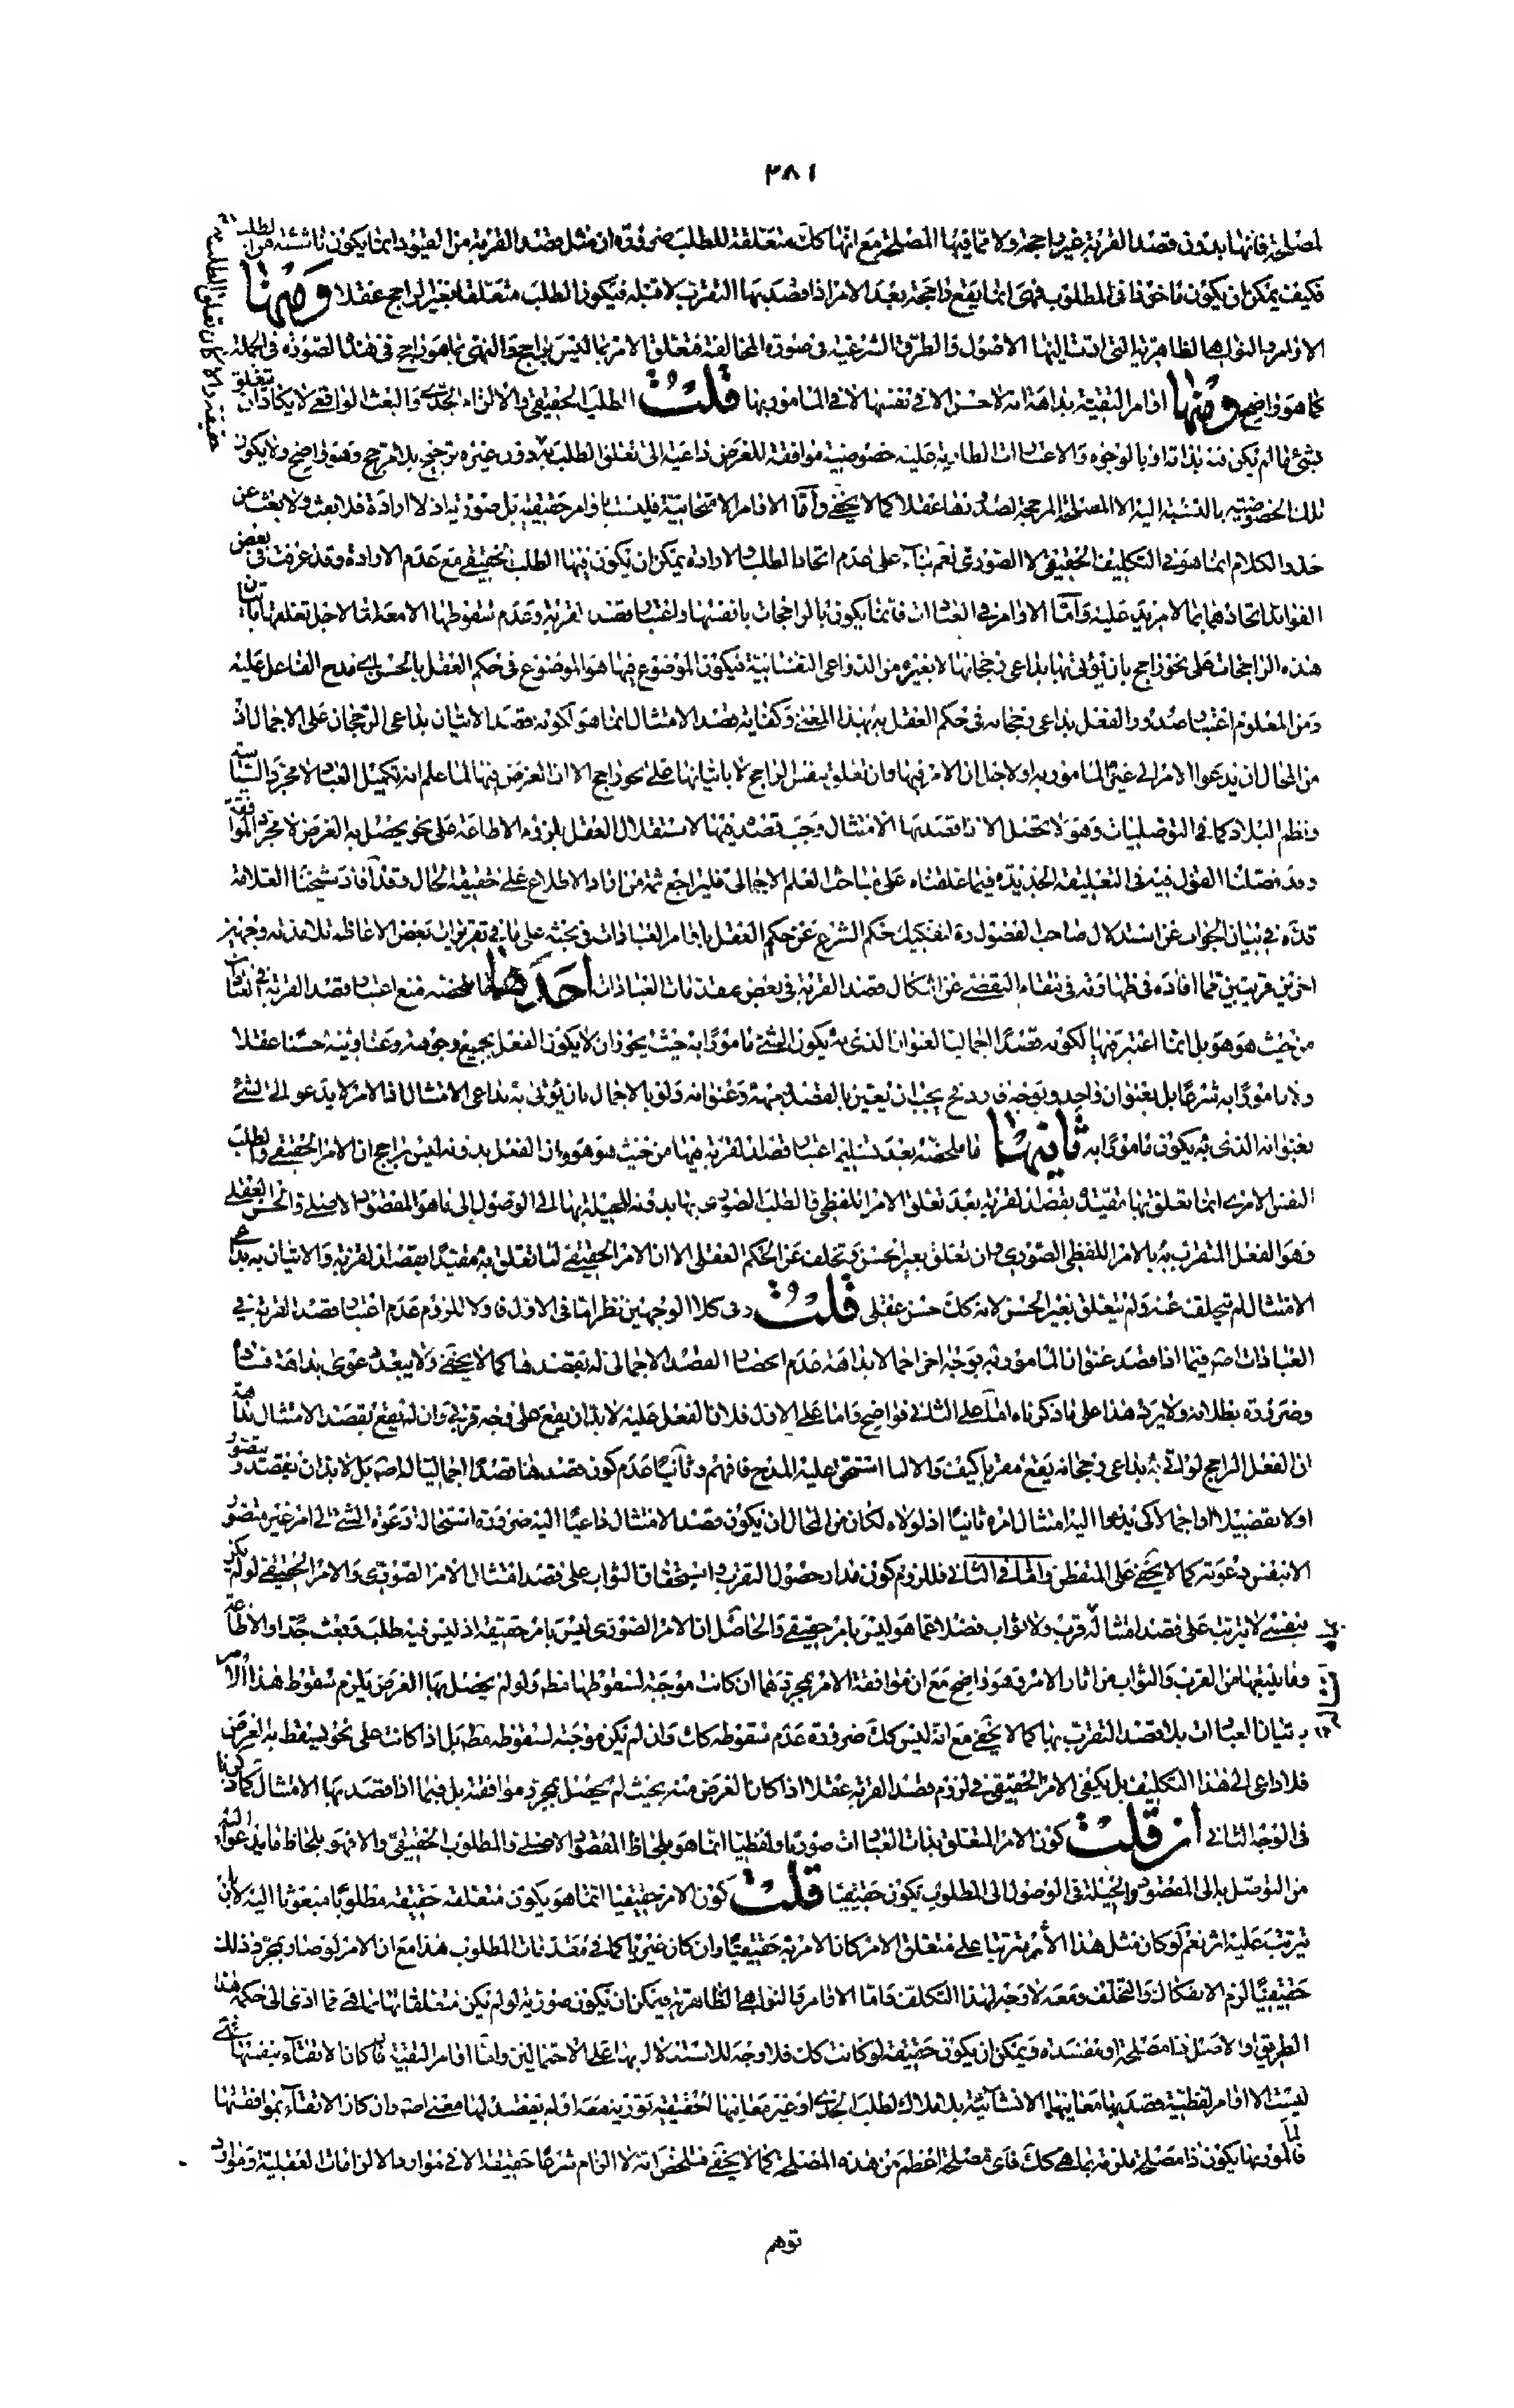 ٣٨١
لمصلحة فانها بدون قصد القربة غير راجحة ولا مما فيها المصلحة مع انها كك متعلقة للطلب ضرورة ان مثل قصد القربة من القيود انما يكون ناشئة من الطلب
فكيف يمكن ان يكون ماخوذا فى المطلوب فهى انما يقع راجحة بعد الامر اذا قصد بها التقرب لا قبله فيكون الطلب متعلقا بغير الراجح عقلا ومنها
الاوامر والنواهى الظاهرية التى ادت اليها الاصول والطرق الشرعية فى صورة المخالفة فتعلق الامر بما ليس براجح والنهى بما هو راجح فى هذه الصورة فى الجملة
كما هو واضح ومنها اوامر التقية بداهة انه لا حسن الا فى نفسها لا فى المامور بها قلت الطلب الحقيقى والالزام الجدى والبعث الواقعى لا يكاد ان يتعلق
بشئ ما لم يكن فيه بذاته او بالوجوه والاعتبارات الطارية عليه خصوصية موافقة للغرض داعية الى تعلق الطلب به دون غيره ترجيح بلا مرجح وهو واضح ولا يكون
تلك الخصوصية بالنسبة اليه الا المصلحة المرجحة لصدورها عقلا كما لا يخفى واما الاوامر الامتحانية فليست باوامر حقيقية بل صورية اذ لا ارادة فلا بعث ولا بعث عن
جد والكلام انما هو فى التكليف الحقيقى لا الصورى نعم بناء على عدم اتحاد الطلب والارادة يمكن ان يكون فيها الطلب الحقيقى مع عدم الارادة وقد عرفت فى بعض
الفوائد اتحادهما بما لا مزيد عليه واما الاوامر فى العبادات فانما يكون بالراجحات بانفسها واعتبار قصد القربة وعدم سقوطها الا معه انما لاجل تعلقها باتيان
هذه الراجحات على نحو راجح بان يؤتى بها بداعى رجحانها لا بغيره من الدواعى النفسانية فيكون الموضوع فيها هو الموضوع فى حكم العقل بالحسن اى مدح الفاعل عليه
ومن المعلوم اعتبار صدور الفعل بداعى رجحانه فى حكم العقل به بهذا المعنى وكفاية قصد الامتثال انما هو لكونه قصد الاتيان بداعى الرجحان على الاجمال اذ
من المحال ان يدعوا الامر الى غير المامور به او لاجل ان الامر فيها وان تعلق بنفس الراجح لا باتيانها على نحو راجح الا ان الغرض فيها لما علم انه تكميل العباد لا مجرد السياسة
ونظم البلاد كما فى التوصليات وهو لا يحصل الا اذا قصد بها الامتثال وجب قصده فيها لاستقلال العقل بلزوم الاطاعة على نحو يحصل به الغرض لا مجرد الموافقة
وقد فصلنا القول فيه فى التعليقة الجديدة فيما علقناه على مباحث العلم الاجمالى فليراجع ثمة من اراد الاطلاع على حقيقة الحال وقد افاد شيخنا العلامة
قده فى بيان الجواب عن استدلال صاحب الفصول ره لتفكيك حكم الشرع عن حكم العقل باوامر العبادات فى بحثه على ما فى تقريرات بعض الاعاظم تلامذته وجهين
اخرين قريبين مما افاده فى طهارته فى مقام التفصى عن اشكال قصد القربة فى بعض مقدمات العبادات احدهما ما ملخصه منع اعتبار قصد القربة فى العبادات
من حيث هو هو بل انما اعتبر فيها لكونه قصدا اجماليا لعنوان الذى به يكون الشئ مامورا به حيث يجوز ان لا يكون الفعل بجميع وجوهه وعناوينه حسنا عقلا
ولا مامورا به شرعا بل بعنوان واحد وبوجه فارد فح يجب ان يتعين بالقصد بوجهه وعنوانه ولو بالاجمال بان يؤتى به بداعى الامتثال اذ الامر لا يدعو الى الشئ
بعنوانه الذى به يكون مامورا به ثانيهما ما ملخصه بعد تسليم اعتبار قصد القربة فيها من حيث هو هو وان الفعل بدونه ليس براجح ان الامر الحقيقى والطلب
النفس الامرى انما تعلق بها مقيدة بقصد القربة بعد تعلق الامر اللفظى والطلب الصورى بها بدونه للحيلة بها الى الوصول الى ما هو المقصود الاصلى والحسن العقلى
وهو الفعل المتقرب به بالامر اللفظى الصورى وان تعلق بغير الحسن وتخلف عن الحكم العقلى الا ان الامر الحقيقى لما تعلق به مقيدا بقصد القربة والاتيان به بداعى
الامتثال لم يتخلف عنه ولم يتعلق بغير الحسن لانه كك حسن عقلى قلت وفى كلا الوجهين نظر اما فى الاول فاولا للزوم عدم اعتبار قصد القربة فى
العبادات اصه فيما اذا قصد عنوان المامور به بوجه اخر اجمالا بداهة عدم انحصار القصد الاجمالى له بقصدها كما لا يخفى ولا يبعد دعوى بداهة فساده
وضرورة بطلانه ولا يرد هذا على ما ذكرناه اما على الثانى فواضح واما على الاول فلان الفعل عليه لا بد ان يقع على وجه قربى وان لم يقع بقصد الامتثال بداهة
ان الفعل الراجح لو اتى به بداعى رجحانه يقع مقربا كيف والا لما استحق عليه المدح فافهم وثانيا عدم كون قصدها قصدا اجماليا له اصه بل لا بد ان يقصد ويتصور
اولا تفصيلا او اجمالا كى يدعوا اليه امتثال امره ثانيا اذ لولاه لكان من المحال ان يكون قصد الامتثال داعيا اليه ضرورة استحالة دعوة الشئ الى امر غير متصور
الا بنفس دعوته كما لا يخفى على المتفطن واما فى الثانى فللزوم كون مدار حصول التقرب واستحقاق الثواب على قصد امتثال الامر الصورى والامر الحقيقى لو لم يكن
بنفسه لا يترتب على قصد امتثاله قرب ولا ثواب فضلا عما هو ليس بامر حقيقى والحاصل ان الامر الصورى ليس بامر حقيقة اذ ليس فيه طلب وبعث جدا والاطاعة
وما يتبعها من القرب والثواب من اثار الامر وهو واضح مع ان موافقة الامر بمجردها ان كانت موجبة لسقوطها مطه ولو لم يحصل بها الغرض يلزم سقوط هذا الامر
باتيان العبادات بلا قصد التقرب بها كما لا يخفى مع انه ليس كك ضرورة عدم سقوطه كك وان لم يكن موجبة لسقوطه مطه بل اذا كانت على نحو يسقط به الغرض
فلا داعى الى هذا التكليف بل يكفى الامر الحقيقى فى لزوم قصد القربة عقلا اذا كان الغرض منه بحيث لم يحصل بمجرد موافقته بل فيما اذا قصد بها الامتثال كما ذكرنا
فى الوجه الثانى ان قلت كون الامر المتعلق بذات العبادات صوريا ولفظيا انما هو بلحاظ المقصود الاصلى والمطلوب الحقيقى والا فهو بلحاظ ما يدعوا اليه
من التوصل به الى المقصود والحيلة فى الوصول الى المطلوب يكون حقيقيا قلت كون الامر حقيقيا انما هو بكون متعلقه حقيقة مطلوبا مبعوثا اليه لا بان
يترتب عليه اثر نعم لو كان مثل هذا الاثر مترتبا على متعلق الامر كان الامر به حقيقيا وان كان غيريا كما فى مقدمات المطلوب هذا مع ان الامر لو صار بمجرد ذلك
حقيقيا لزم الانفكاك والتخلف ومعه لا وجه لهذا التكلف واما الاوامر والنواهى الظاهرية فيمكن ان يكون صورية لو لم يكن متعلقاتها بما هى مما ادى الى حكمه هذا
الطريق او الاصل ذا مصلحة او مفسدة ويمكن ان يكون حقيقة لو كانت كك فلا وجه للاستدلال بها على الاحتمالين واما اوامر التقية فما كان الاتقاء بنفسها فهى
ليست الا اوامر لفظية قصد بها معانيها الانشائية بلا ملاك لطلب الجدى او غير معانيها الحقيقية تورية معه او لم يقصد لها معنى اصه وان كان الاتقاء بموافقتها
فالمامور بها يكون ذا مصلحة ملزمة بما هى كك فاى مصلحة اعظم من هذه المصلحة كما لا يخفى فتلخص انه لا الزام شرعا حقيقة الا فى موارد الالزامات العقلية وموارد
توهم